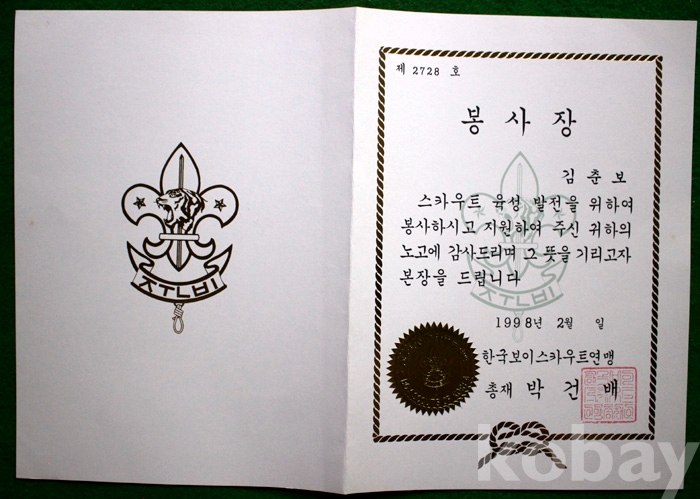 준비
제 2728 호
봉사장
김춘보
스카우트 육성 발전을 위하여
봉사하시고 지원하여 주신 귀하의
노고에 감사드리며 그 뜻을 기리고자
본장을 드립니다
준비
1998년 2월 일
한국보이스카우트연맹
총재 박건배
kobay